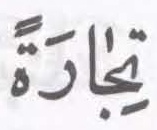 تِجَٰارَةً